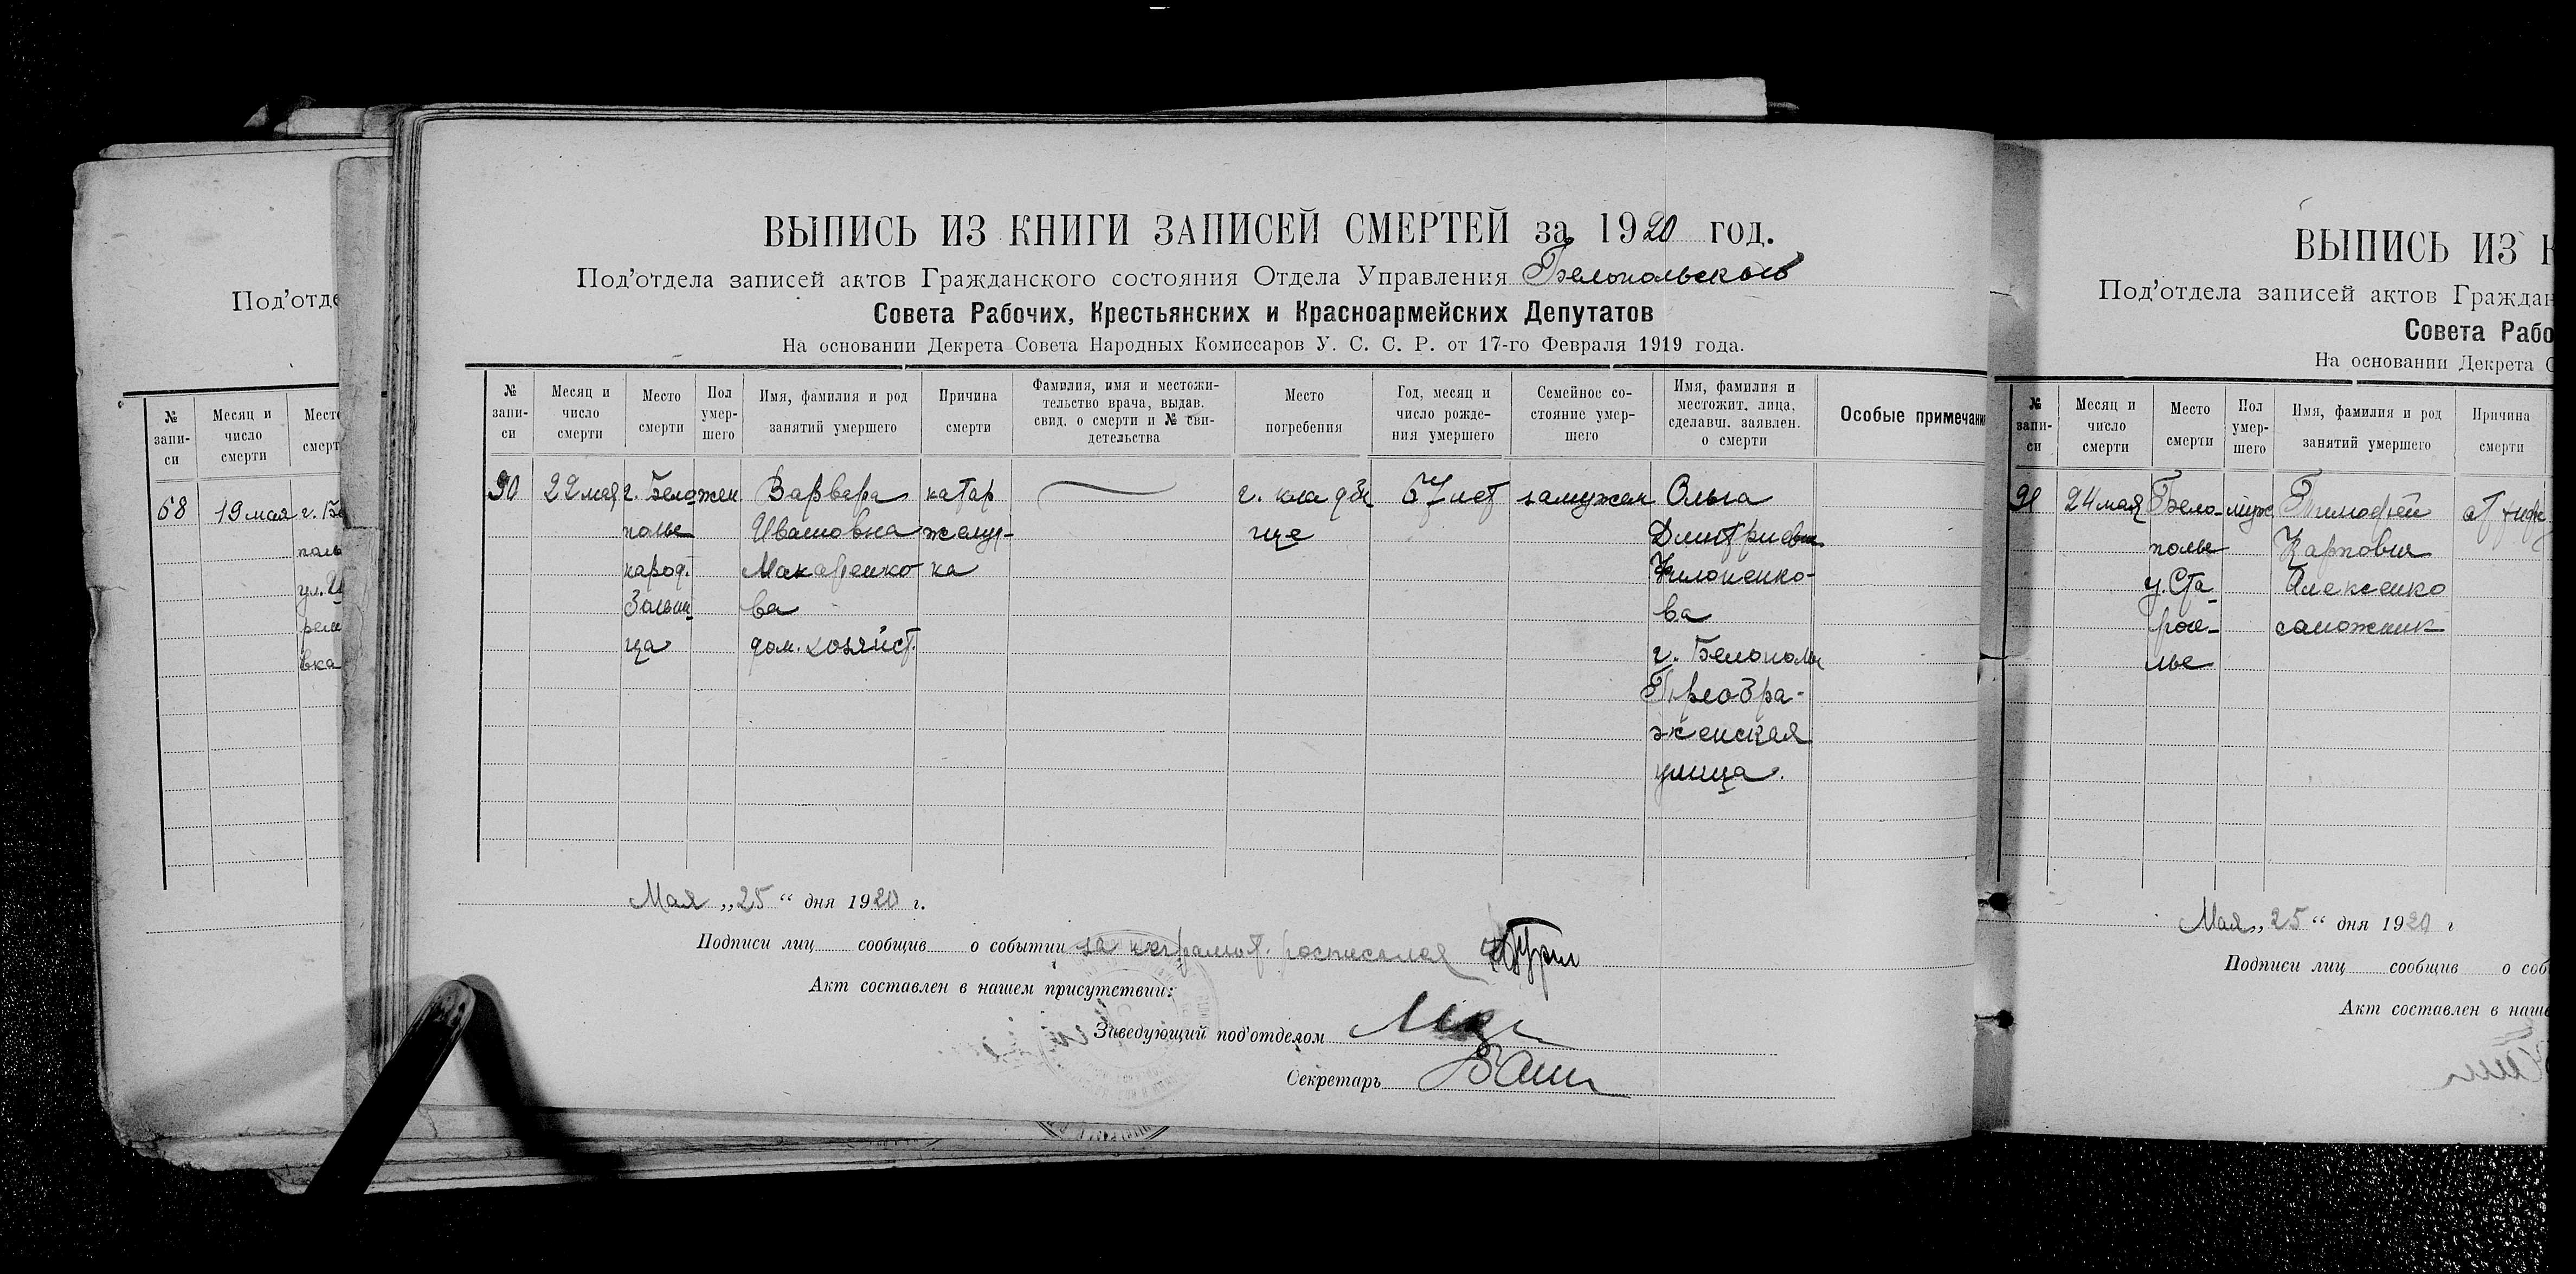 Под'отде
№ запи-си
Месяц и число смерти
Место смерт
68
19 мая
г. Бе
поль
ул.
вка
ВЫПИСЬ ИЗ КНИГИ ЗАПИСЕЙ СМЕРТЕЙ за 1920 год.
Под'отдела записей актов Гражданского состояния Отдела Управления Белопольского
Совета Рабочих, Крестьянских и Красноармейских Депутатов
На основании Декрета Совета Народных Комиссаров У. С. С. Р. от 17-го Февраля 1919 года.
№ запи-си
Месяц и число смерти
Место смерти
Пол умер-шего
Имя, фамилия и род занятий умершего
Причина смерти
Фамилия, имя и местожи-тельство врача, выдав. свид. о смерти и № сви-детельства
Место погребения
Год, месяц и число рожде-ния умершего
Семейное со-стояние умер-шего
Имя, фамилия и местожит. лица, сделавш. заявлен. о смерти
Особые примечани
90
22 мая
г. Бело-
полье
народ.
ца
жен
Варвара
Ивановна
Макаренко
ва
дом. хозяйст.
катар
желуд-
ка
г. кладби
ще
67 лет
замужем
Ольга
Дмитриевна
Филоненко-
ва
г. Белополье
Преобра-
женская
улица.
Мая „25“ дня 1920 г.
Подписи лиц сообщив о событии за неграмот. росписался
Акт составлен в нашем присутствии:
Заведующий под'отделом
Секретарь
ВЫПИСЬ ИЗ К
Под'отдела записей актов Граждан
Совета Рабо
На основании Декрета С
№ запи-си
Месяц и число смерти
Место смерти
Пол умер-шего
Имя, фамилия и род занятий умершего
Причина смерти
91
24 мая
Бело-
полье
у. Ста-
рое-
лье
муж
Тимофей
Карпович
Алексенко
сапожник
от тиф
Мая „25“ дня 1920 г
Подписи лиц сообщив о соб
Акт составлен в наше